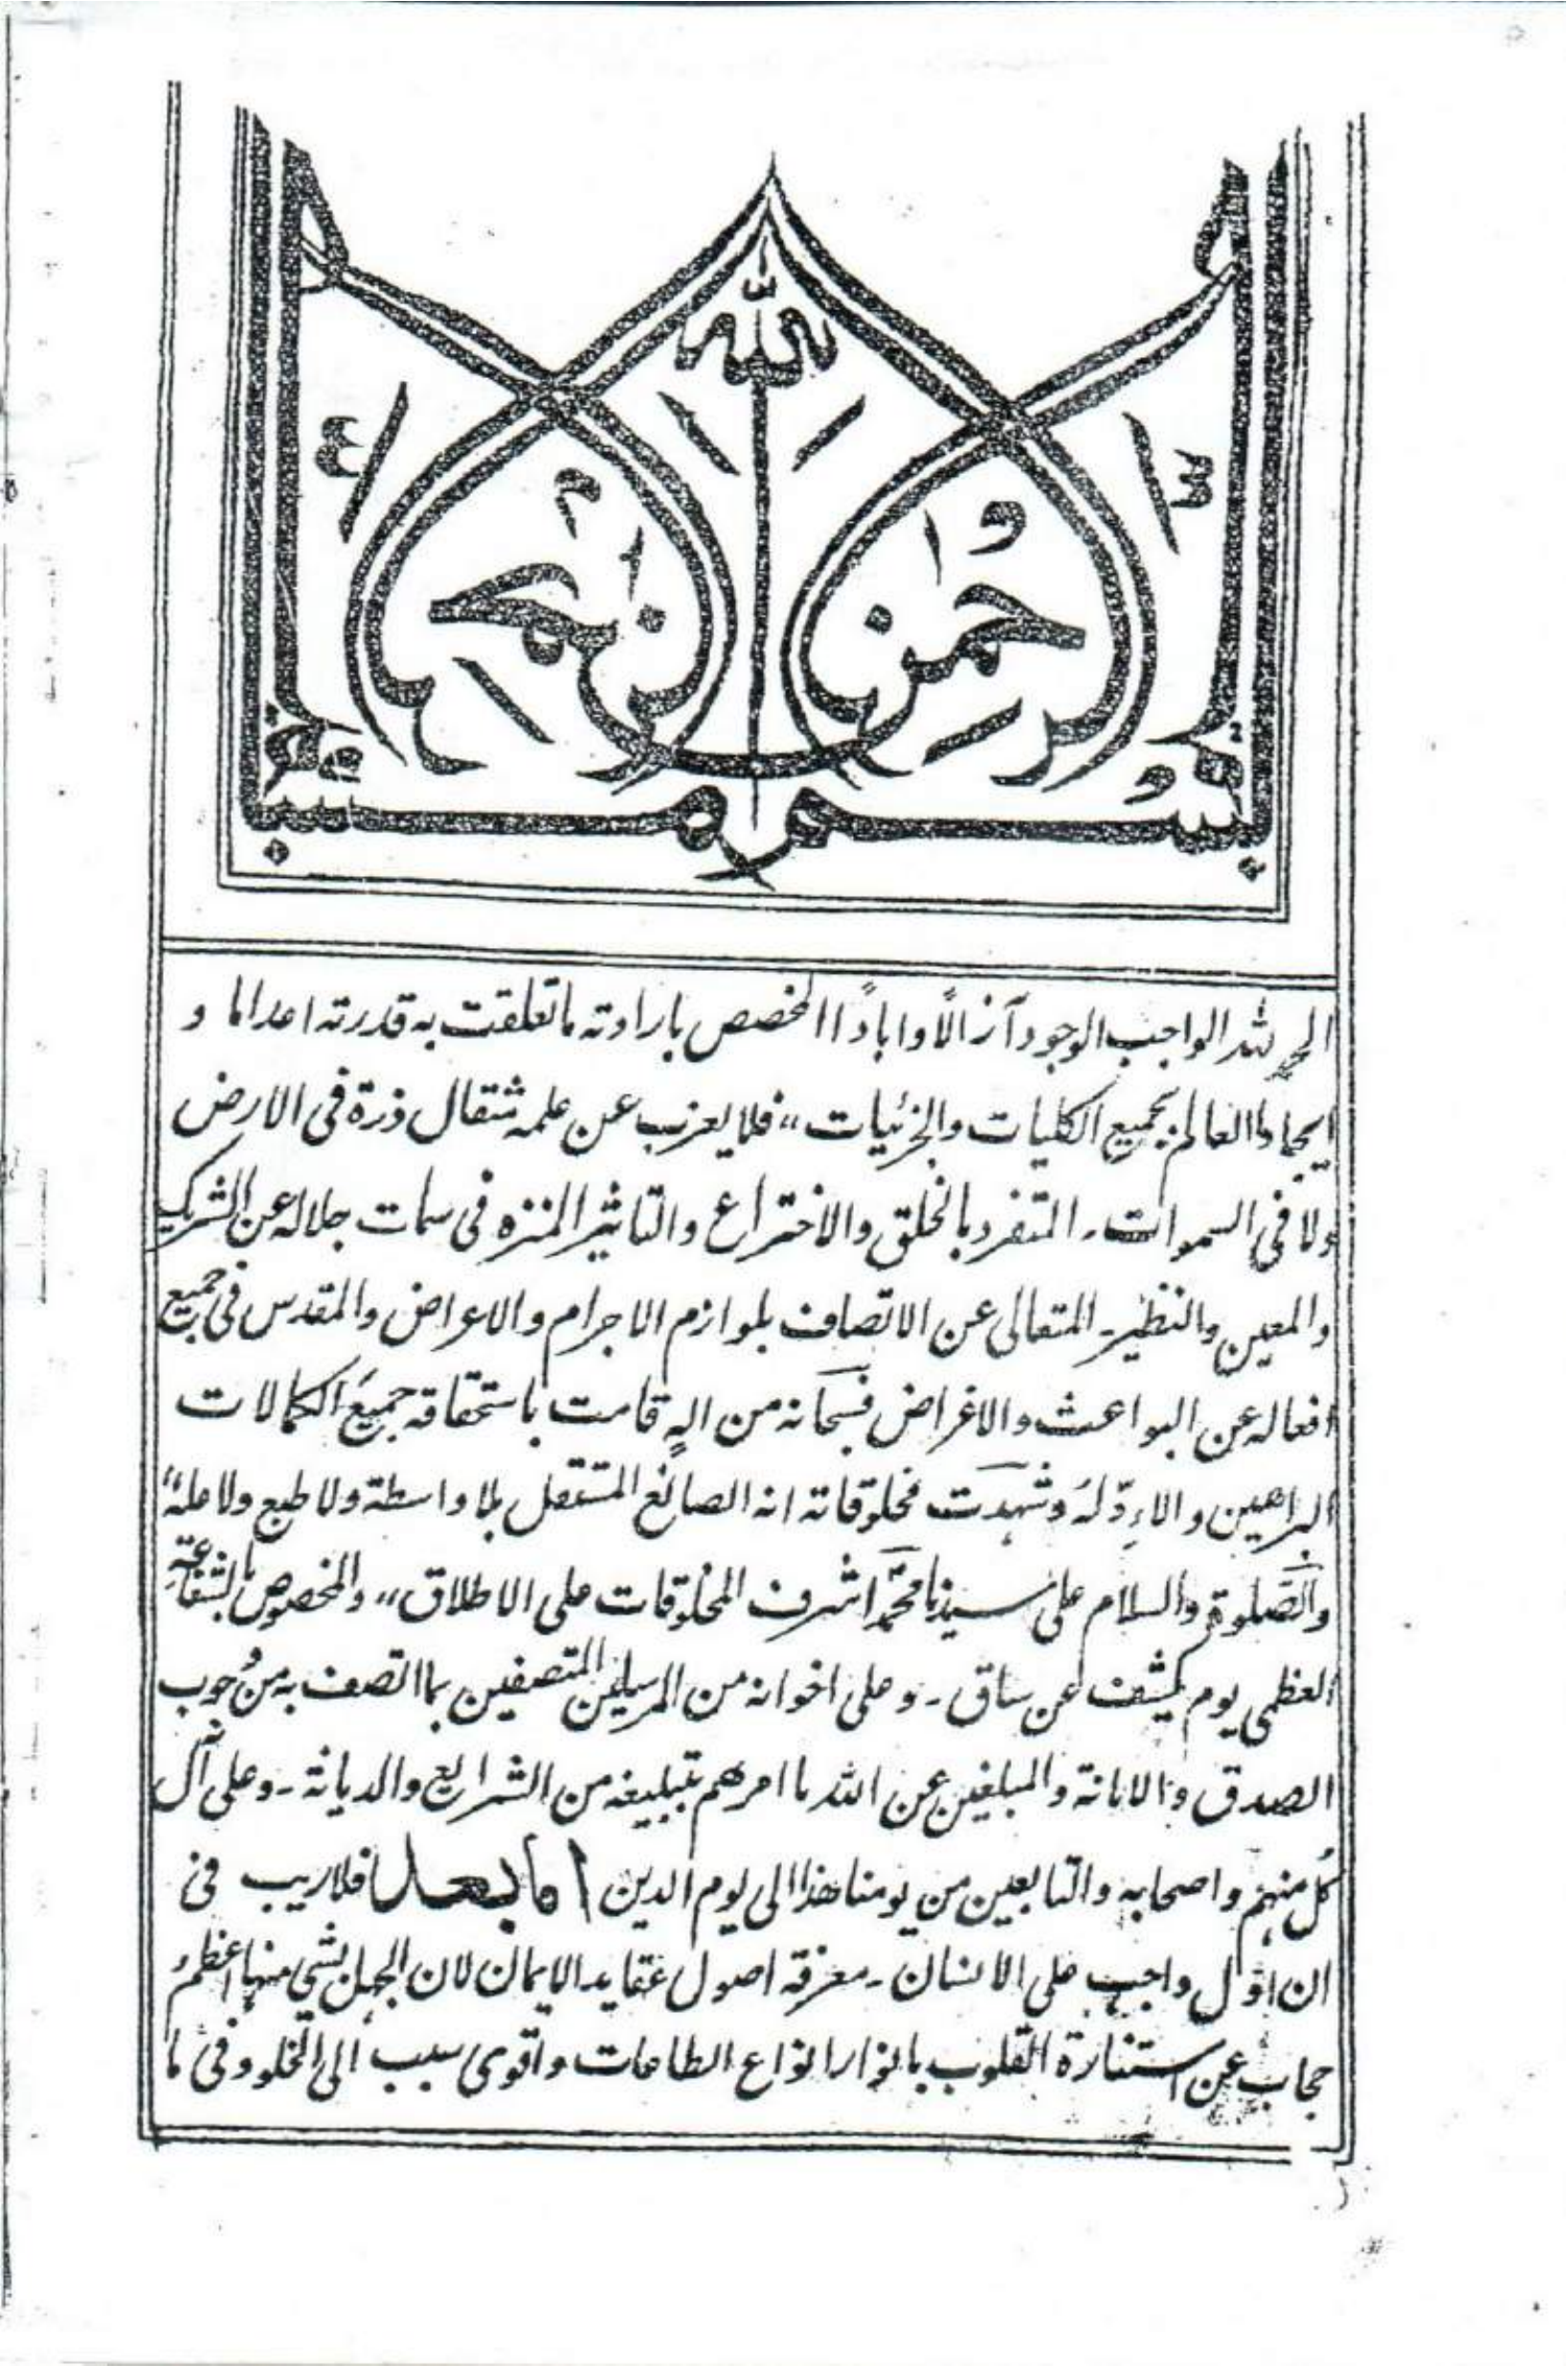 بسم الله الرحمن الرحيم
الحمد لله الواجب الوجود آزالًا واباداً المخصص بارادته ما تعلقت به قدرته اعداما و
ايجادا العالم بجميع الكليات والجزئيات،، فلا يعزب عن علمه مثقال ذرة فى الارض
ولا فى السموات۔ المتفرد بالخلق والاختراع والتاثير المنزه فى سمات جلاله عن الشريك
والمعين والنظير۔ المتعالى عن الاتصاف بلوازم الاجرام والاعراض والمقدس فى جميع
افعاله عن البواعث والاغراض فسبحانه من الهٍ قامت باستحقاقه جميعَ الكمالات
البراهين والادِّلهُ وشهدت مخلوقاته انه الصانع المستقل بلا واسطة ولا طبع ولا علة
والصَّلوة والسلام على سيدنا محمَّد اشرف المخلوقات على الاطلاق،، والمخصوص بالشفاعة
العظمى يوم يكشف عن ساق۔ وعلى اخوانه من المرسلين المتصفين بما اتصف به من وُجوب
الصدق والامانة والمبلغين عن الله ما امرهم بتبليغه من الشرايع والديانة۔ وعلى آل
كُل منهم واصحابه والتابعين من يومنا هذا الى يوم الدين اما بعد فلاريب فى
ان اوّل واجب على الانسان۔ معرفة اصول عقايد الايمان لان الجهل بشى منها اعظمُ
حجاب عن استنارة القلوب بانوار انواع الطاعات واقوى سبب الى الخلود فى